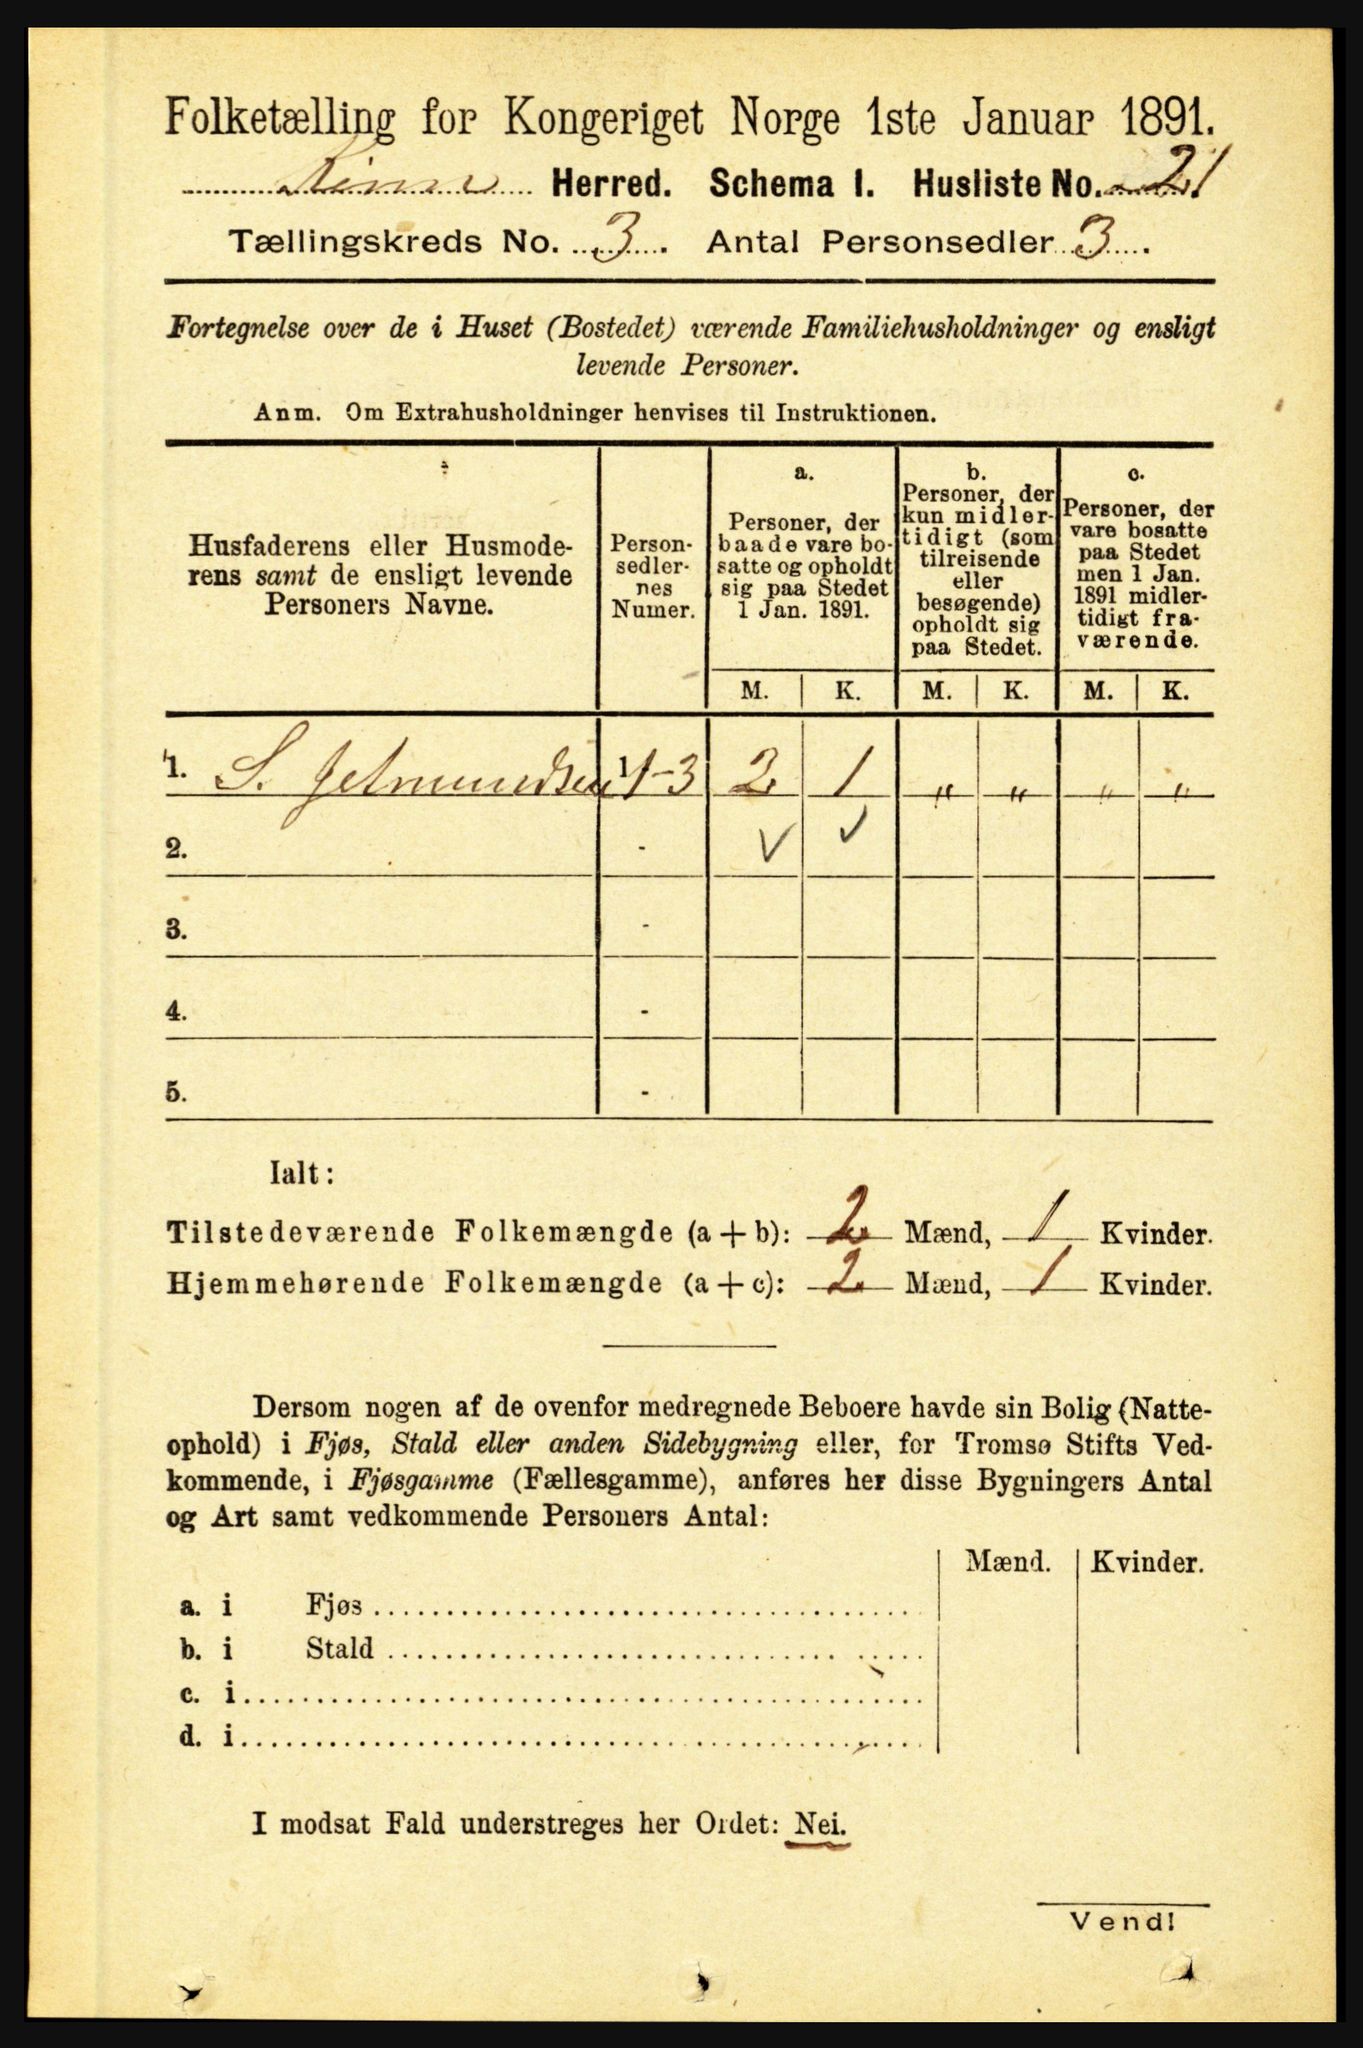 Folketælling for Kongeriget Norge 1ste Januar 1891.
Kinn Herred. Schema I. Husliste No. 21
Tællingskreds No. 3. Antal Personsedler 3.
Fortegnelse over de i Huset (Bostedet) værende Familiehusholdninger og ensligt
levende Personer.
Anm. Om Extrahusholdninger henvises til Instruktionen.
Husfaderens eller Husmode-
rens samt de ensligt levende
Personers Navne.
Person-
sedler-
nes
Numer.
a.
Personer, der
baade vare bo-
satte og opholdt
sig paa Stedet
1 Jan. 1891.
b.
Personer, der
kun midler-
tidigt (som
tilreisende
eller
besøgende)
opholdt sig
paa Stedet.
c.
Personer, der
vare bosatte
paa Stedet
men 1 Jan.
1891 midler-
tidigt fra-
værende.
M. K. M. K. M. K.
1. S. Jetmundsen 1-3 2 1 " " " "
2. - ✓ ✓
3. -
4. -
5. -
Ialt:
Tilstedeværende Folkemængde (a + b): 2 Mænd, 1 Kvinder.
Hjemmehørende Folkemængde (a + c): 2 Mænd, 1 Kvinder.
Dersom nogen af de ovenfor medregnede Beboere havde sin Bolig (Natte-
ophold) i Fjøs, Stald eller anden Sidebygning eller, for Tromsø Stifts Ved-
kommende, i Fjøsgamme (Fællesgamme), anføres her disse Bygningers Antal
og Art samt vedkommende Personers Antal:
Mænd. Kvinder.
a. i Fjøs
b. i Stald
c. i
d. i
I modsat Fald understreges her Ordet: Nei.
Vend!